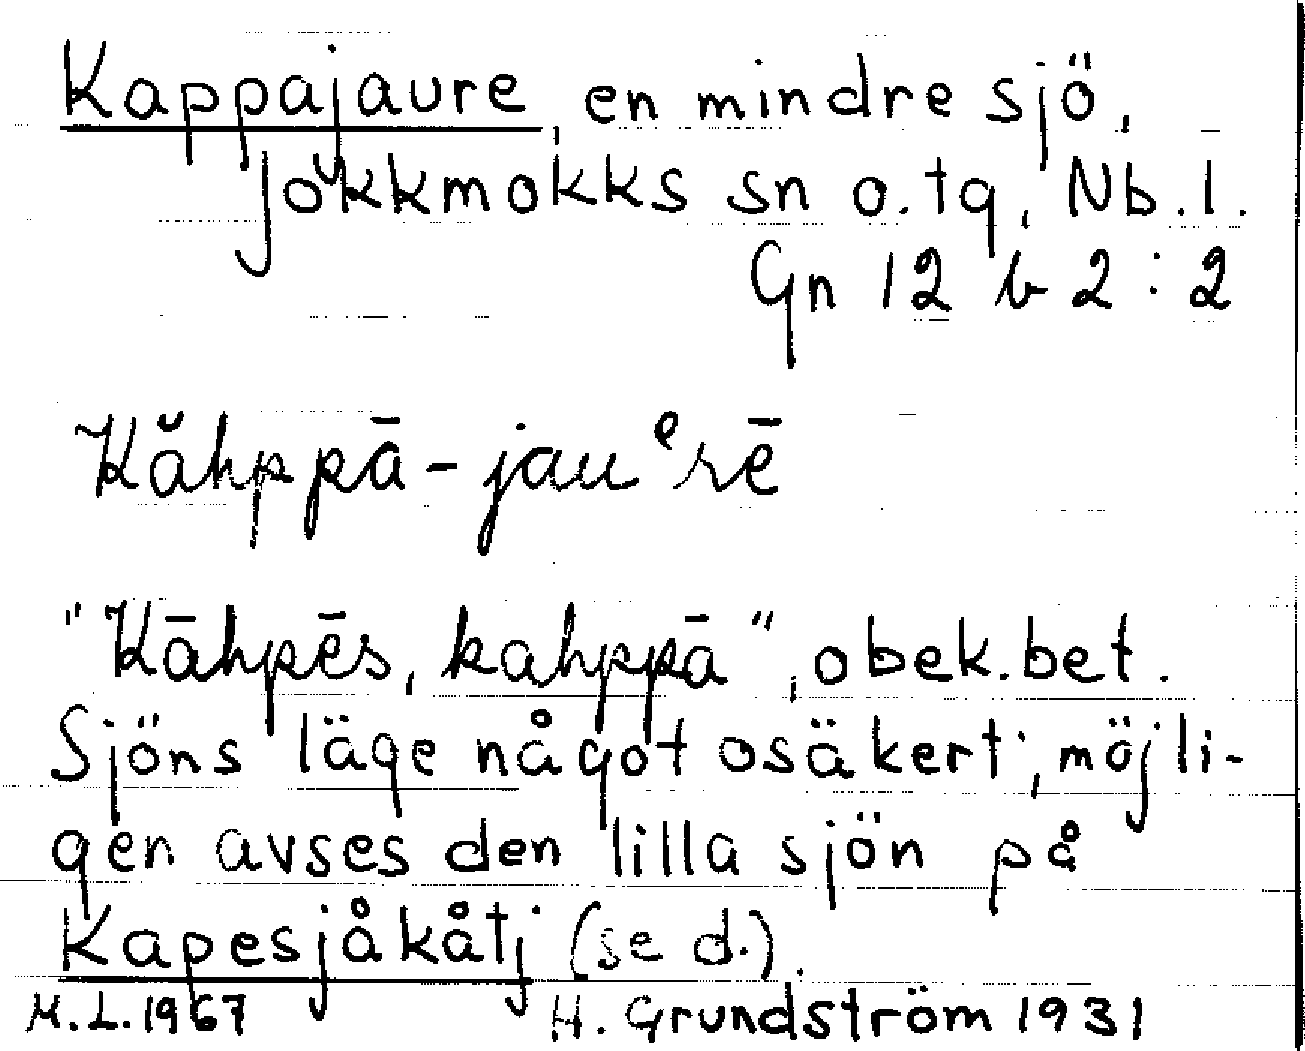 Kappajaure, en mindre sjö,
Jokkmokks sn o. tg, Nb. l.
Gn 12 b 2 : 2
Kåhppā-jauᵉrē
"Kāhpēs, kahppā", obek. bet.
Sjöns läge något osäkert; möjli-
gen avses den lilla sjön på
Kapesjåkåtj (se d.).
M.L. 1967 H. Grundström 1931